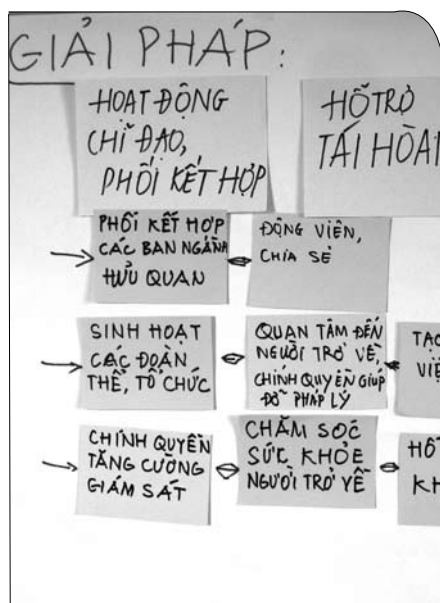 GIẢI PHÁP:
HOẠT ĐỘNG
CHỈ ĐẠO,
PHỐI KẾT HỢP
HỖ TRỢ
TÁI HÒA
PHỐI KẾT HỢP
CÁC BAN NGÀNH
HỮU QUAN
ĐỘNG VIÊN,
CHIA SẺ
SINH HOẠT
CÁC ĐOÀN
THỂ, TỔ CHỨC
QUAN TÂM ĐẾN
NGƯỜI TRỞ VỀ,
CHÍNH QUYỀN GIÚP
ĐỠ PHÁP LÝ
TẠO
VIỆ
CHÍNH QUYỀN
TĂNG CƯỜNG
GIÁM SÁT
CHĂM SÓC
SỨC KHỎE
NGƯỜI TRỞ VỀ
HỖ
KH